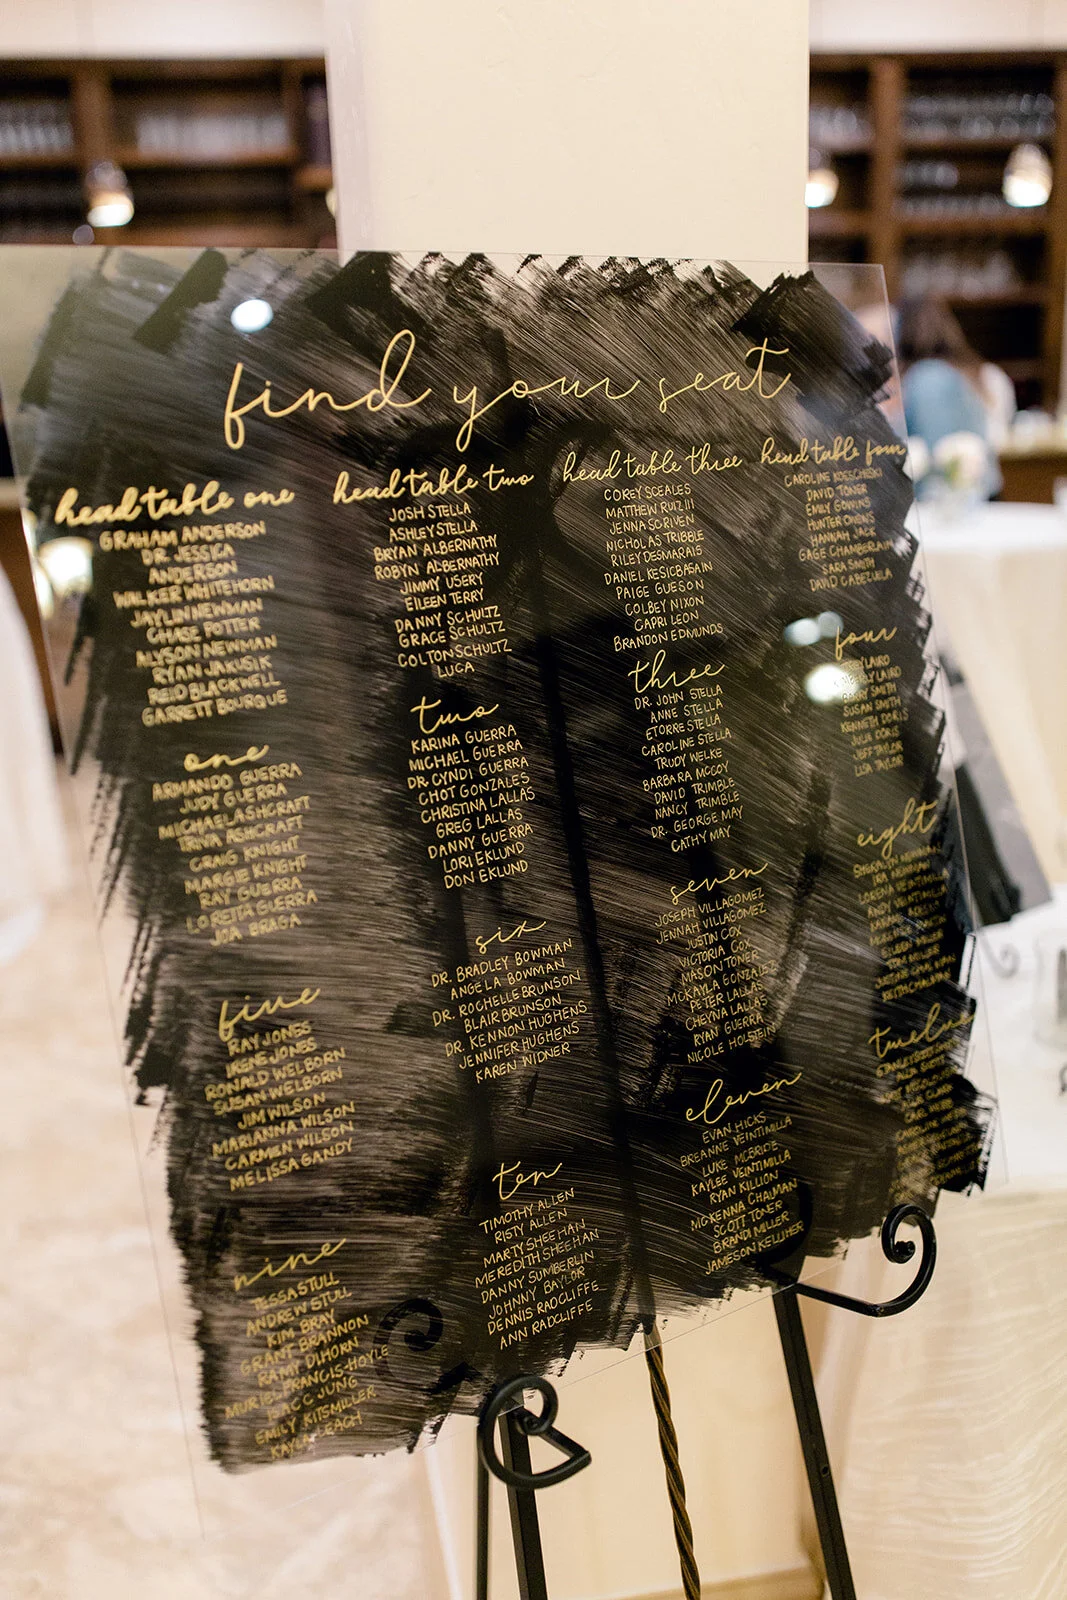 find your seat
head table one
GRAHAM ANDERSON
DR. JESSICA
ANDERSON
WALKER WHITEHORN
JAYLIN NEWMAN
CHASE POTTER
ALYSON NEWMAN
RYAN JAKUSIK
REID BLACKWELL
GARRETT BOURQUE
head table two
JOSH STELLA
ASHLEY STELLA
BRYAN ALBERNATHY
ROBYN ALBERNATHY
JIMMY USERY
EILEEN TERRY
DANNY SCHULTZ
GRACE SCHULTZ
COLTON SCHULTZ
LUCA
head table three
COREY SCEALES
MATTHEW RUIZ III
JENNA SCRIVEN
NICHOLAS TRIBBLE
RILEY DESMARAIS
DANIEL KESICBASIAN
PAIGE GUESON
COLBEY NIXON
CAPRI LEON
BRANDON EDMUNDS
head table four
CAROLINE
DAVID TONER
EMILY
HUNTER OWENS
HANNAH JACK
GAGE CHAMBERLAIN
SARA SMITH
DAVID CABEZUELA
one
ARMANDO GUERRA
JUDY GUERRA
MICHAEL ASHCRAFT
TRIVA ASHCRAFT
CRAIG KNIGHT
MARGIE KNIGHT
RAY GUERRA
LORETTA GUERRA
JOA BRAGA
two
KARINA GUERRA
MICHAEL GUERRA
DR. CYNDI GUERRA
CHOT GONZALES
CHRISTINA LALLAS
GREG LALLAS
DANNY GUERRA
LORI EKLUND
DON EKLUND
three
DR. JOHN STELLA
ANNE STELLA
ETORRE STELLA
CAROLINE STELLA
TRUDY WELKE
BARBARA MCCOY
DAVID TRIMBLE
NANCY TRIMBLE
DR. GEORGE MAY
CATHY MAY
four
LAIRD
LAIRD
SMITH
SUSAN SMITH
KENNETH DORIS
JULIA DORIS
JEFF TAYLOR
LISA TAYLOR
five
RAY JONES
IRENE JONES
RONALD WELBORN
SUSAN WELBORN
JIM WILSON
MARIANNA WILSON
CARMEN WILSON
MELISSA GANDY
six
DR. BRADLEY BOWMAN
ANGELA BOWMAN
DR. ROCHELLE BRUNSON
BLAIR BRUNSON
DR. KENNON HUGHENS
JENNIFER HUGHENS
KAREN WIDNER
seven
JOSEPH VILLAGOMEZ
JENNAH VILLAGOMEZ
JUSTIN COX
VICTORIA COX
MASON TONER
MCKAYLA GONZALEZ
PETER LALLAS
CHEVNA LALLAS
RYAN GUERRA
NICOLE HOLSTEIN
eight
NEWMAN
IRA NEWMAN
LORENA VEINTIMILLA
ANDY VEINTIMILLA
EILEEN MILLER
TOM MILLER
nine
TESSA STULL
ANDREW STULL
KIM BRAY
GRANT BRANNON
RAMY DIHORN
MURIEL FRANCIS-HOYLE
ISACC JUNG
EMILY KITSMILLER
KAYLA LEACH
ten
TIMOTHY ALLEN
RISTY ALLEN
MARTY SHEEHAN
MEREDITH SHEEHAN
DANNY SUMBERLIN
JOHNNY BAYLOR
DENNIS RADCLIFFE
ANN RADCLIFFE
eleven
EVAN HICKS
BREANNE VEINTIMILLA
LUKE MCBRIDE
KAYLEE VEINTIMILLA
RYAN KILLION
MCKENNA CHAIMAN
SCOTT TONER
BRANDI MILLER
JAMESON KELLIHER
twelve